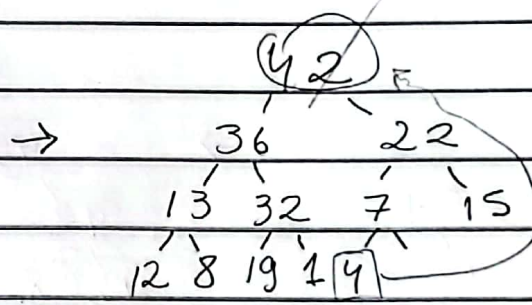 42
→ 36 22
13 32 7 15
12 8 19 1 4